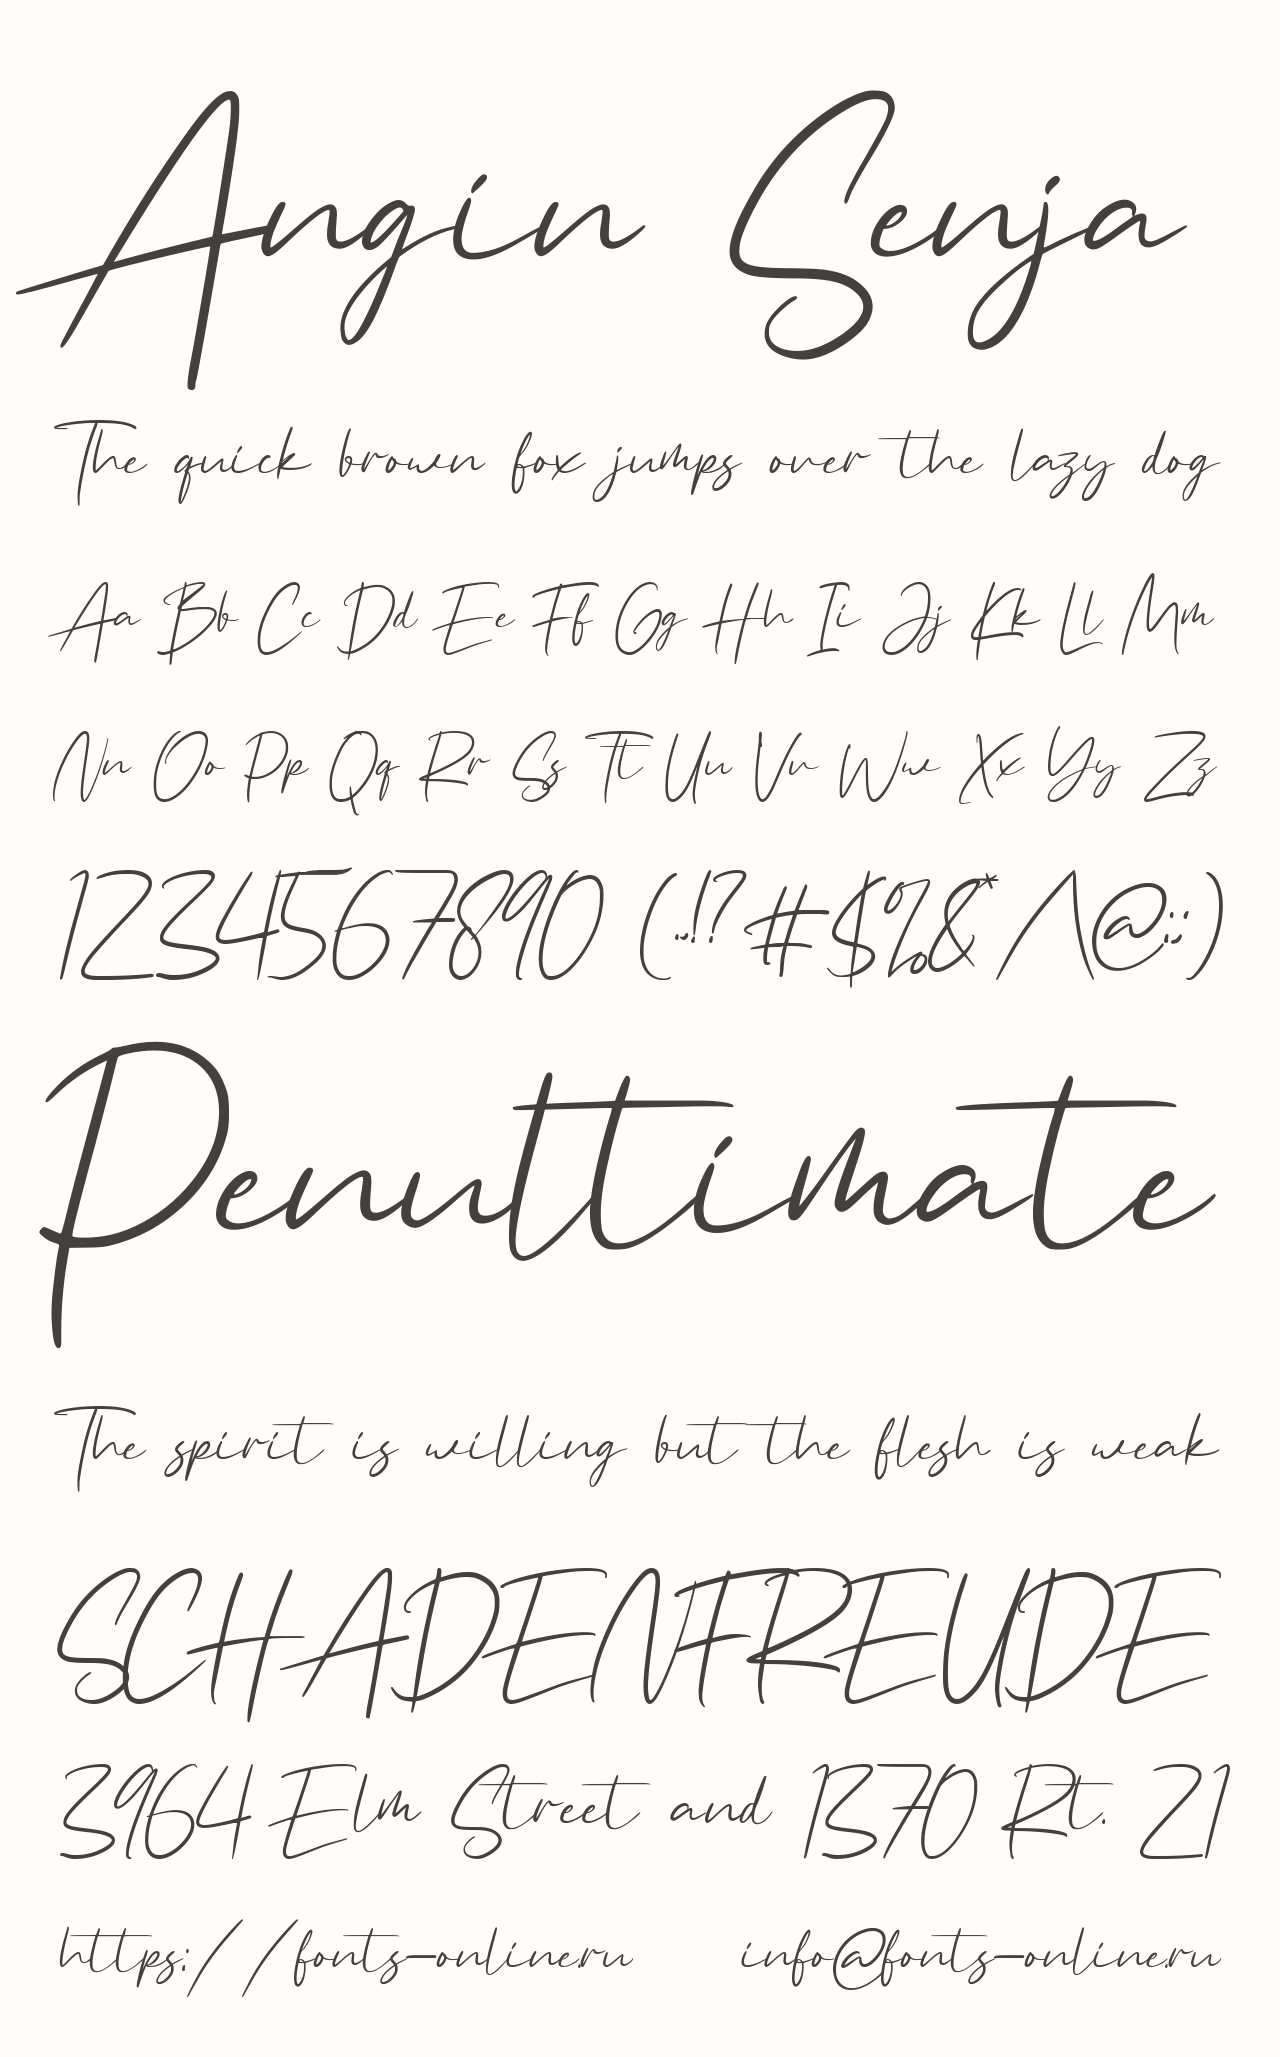 Angin Senja
The quick brown fox jumps over the lazy dog
Aa Bb Cc Dd Ee Ff Gg Hh Ii Jj Kk Ll Mm
Nn Oo Pp Qq Rr Ss Tt Uu Vv Ww Xx Yy Zz
1234567890 (.,!? #$%&* /\@:;)
Penultimate
The spirit is willing but the flesh is weak
SCHADENFREUDE
3964 Elm Street and 1370 Rt. 21
https://fonts-online.ru info@fonts-online.ru